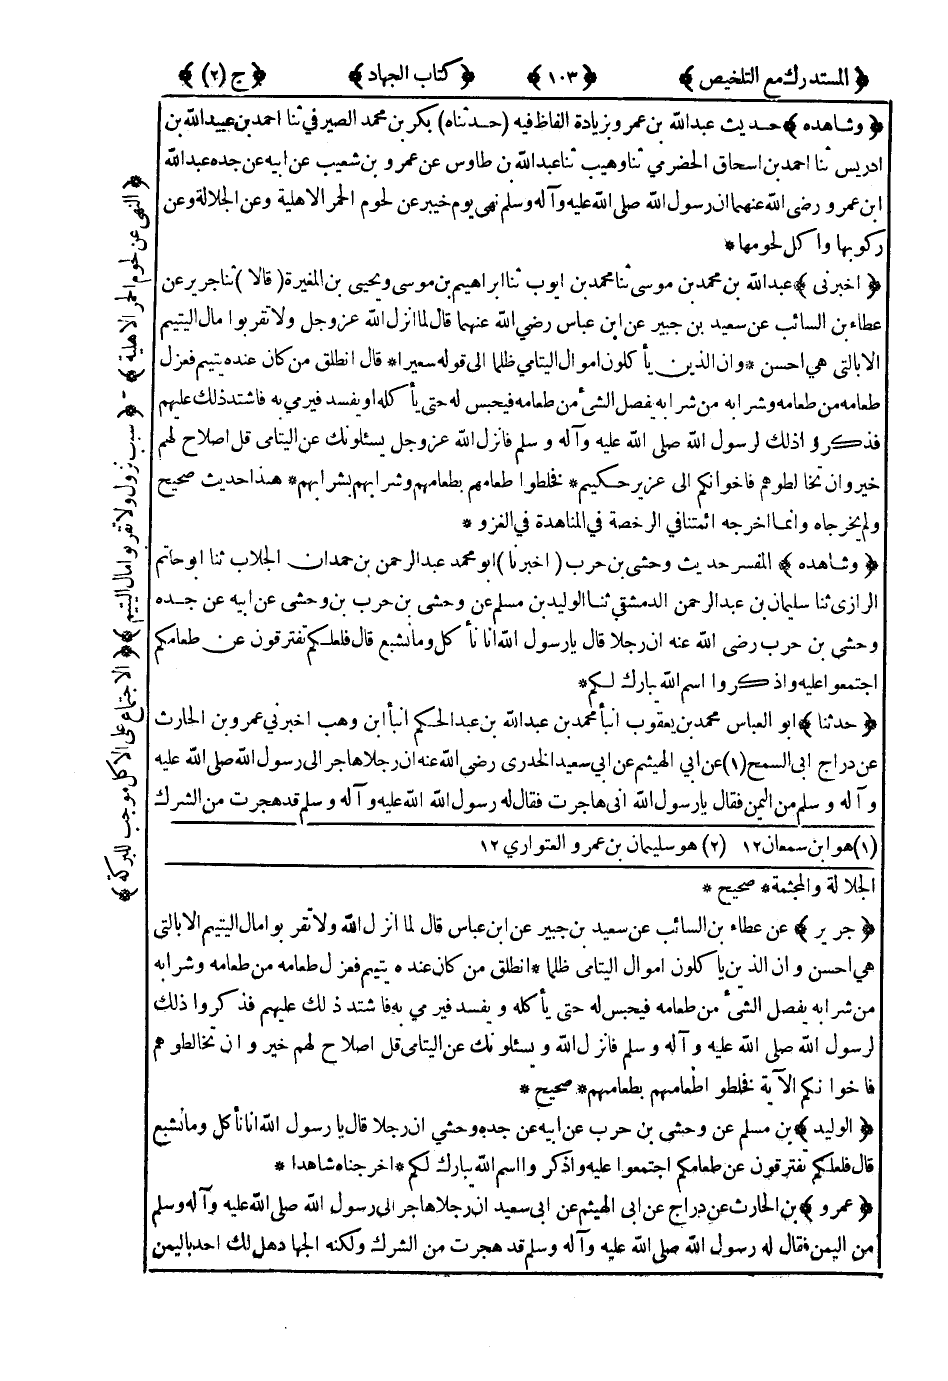 ﴿ المستدرك مع التلخيص ﴾ ﴿ ١٠٣ ﴾ ﴿ كتاب الجهاد ﴾ ﴿ ج (٢) ﴾
﴿ وشاهده ﴾ حديث عبدالله بن عمرو بزيادة الفاظ فيه (حدثناه) بكر بن محمد الصيرفي ثنا احمد بن عبيدالله بن
ادريس ثنا احمد بن اسحاق الحضرمي ثنا وهيب ثنا عبدالله بن طاوس عن عمرو بن شعيب عن ابيه عن جده عبدالله
ابن عمرو رضي الله عنهما ان رسول الله صلى الله عليه وآله وسلم نهى يوم خيبر عن لحوم الحمر الاهلية وعن الجلالة وعن
ركوبها واكل لحومها *
﴿ اخبرني ﴾ عبدالله بن محمد بن موسى ثنا محمد بن ايوب ثنا ابراهيم بن موسى ويحيى بن المغيرة ( قالا ) ثنا جرير عن
عطاء بن السائب عن سعيد بن جبير عن ابن عباس رضي الله عنهما قال لما انزل الله عز وجل ولا تقربوا مال اليتيم
الا بالتي هي احسن * وان الذين يأكلون اموال اليتامى ظلما الى قوله سعيرا * قال انطلق من كان عنده يتيم فعزل
طعامه من طعامه وشرابه من شرابه يفصل الشئ من طعامه فيحبس له حتى يأكله او يفسد فيرمي به فاشتد ذلك عليهم
فذكروا ذلك لرسول الله صلى الله عليه وآله وسلم فانزل الله عز وجل يسئلونك عن اليتامى قل اصلاح لهم
خير وان تخالطوهم فاخوانكم الى عزيز حكيم * فخلطوا طعامهم بطعامهم وشرابهم بشرابهم * هذا حديث صحيح
ولم يخرجاه وانما اخرجه ائمتنا في الرخصة في المناهدة في الغزو *
﴿ وشاهده ﴾ المفسر حديث وحشي بن حرب ( اخبرنا ) ابو محمد عبدالرحمن بن حمدان الجلاب ثنا ابو حاتم
الرازي ثنا سليمان بن عبدالرحمن الدمشقي ثنا الوليد بن مسلم عن وحشي بن حرب بن وحشي عن ابيه عن جده
وحشي بن حرب رضي الله عنه ان رجلا قال يا رسول الله انا نأكل وما نشبع قال فلعلكم تفترقون عن طعامكم
اجتمعوا عليه واذكروا اسم الله يبارك لكم *
﴿ حدثنا ﴾ ابو العباس محمد بن يعقوب انبأ محمد بن عبدالله بن عبدالحكم انبأ ابن وهب اخبرني عمرو بن الحارث
عن دراج ابى السمح (١) عن ابي الهيثم عن ابي سعيد الخدري رضي الله عنه ان رجلا هاجر الى رسول الله صلى الله عليه
وآله وسلم من اليمن فقال يا رسول الله انى هاجرت فقال له رسول الله الله عليه وآله وسلم قد هجرت من الشرك
(١) هو ابن سمعان ١٢ (٢) هو سليمان بن عمرو العتواري ١٢
الجلالة والمجثمة * صحيح *
﴿ جرير ﴾ عن عطاء بن السائب عن سعيد بن جبير عن ابن عباس قال لما انزل الله ولا تقربوا مال اليتيم الا بالتى
هي احسن وان الذين ياكلون اموال اليتامى ظلما * انطلق من كان عنده يتيم فعزل طعامه من طعامه وشرابه
من شرابه يفصل الشئ من طعامه فيحبس له حتى يأكله و يفسد فيرمي به فاشتد ذلك عليهم فذكروا ذلك
لرسول الله صلى الله عليه وآله وسلم فانزل الله ويسئلونك عن اليتامى قل اصلاح لهم خير وان تخالطوهم
فاخوانكم الآية فخلطوا طعامهم بطعامهم * صحيح *
﴿ الوليد ﴾ بن مسلم عن وحشي بن حرب عن ابيه عن جده وحشي ان رجلا قال يا رسول الله انا نأكل وما نشبع
قال فلعلكم تفترقون عن طعامكم اجتمعوا عليه واذكروا اسم الله يبارك لكم * اخرجناه شاهدا *
﴿ عمرو ﴾ بن الحارث عن دراج عن ابى الهيثم عن ابى سعيد ان رجلا هاجر الى رسول الله صلى الله عليه وآله وسلم
من اليمن فقال له رسول الله صلى الله عليه وآله وسلم قد هجرت من الشرك ولكنه الجهاد هل لك احد باليمن
﴿ النهى عن لحوم الحمر الاهلية ﴾ - ﴿ سبب نزول ولا تقربوا مال اليتيم ﴾ ﴿ الاجتماع على الاكل موجب للبركة ﴾